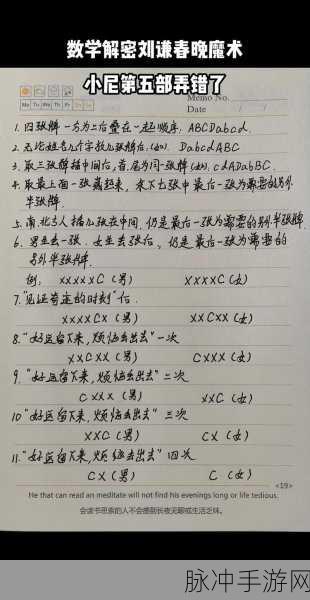 数学解密刘谦春晚魔术
小尼第五部弄错了
Mo Tu We Th Fr Sa Su
Memo No.
Date / /
1. 四张牌一分为二后叠在一起顺序. ABCDabcd.
2. 无论姓名几个字放几张牌后. (如). DabcdABC
3. 取三张牌插中间后, 首, 尾为同一张牌 (如). cdADabBC.
4. 取最上面一张藏起来, 余下七张中最后一张为需要的另外
半张牌.
5. 南, 北方人插几张在中间, 仍是最后一张为需要的另外半张牌
6. 男丢去一张. 女丢去2张后, 仍是最后一张为需要的
另外半张牌
例: xxxxxC (男) xxxxC (女)
7. "见证奇迹的时刻" 后.
xxxxCx (男) xxCxx (女)
8. "好运留下来, 烦恼丢出去" 一次
xxCxx (男) Cxxx (女)
9. "好运留下来, 烦恼丢出去" 二次
Cxxx (男) xxC (女)
10 "好运留下来, 烦恼丢出去" 三次
xxC (男) Cx (女)
11. "好运留下来, 烦恼丢出去" 四次
Cx (男) C (女)
<19>
He that can read an meditate will not find his evenings long or life tedious.
会读书思索的人不会感到长夜无眠或生活乏味。
脉冲手游网